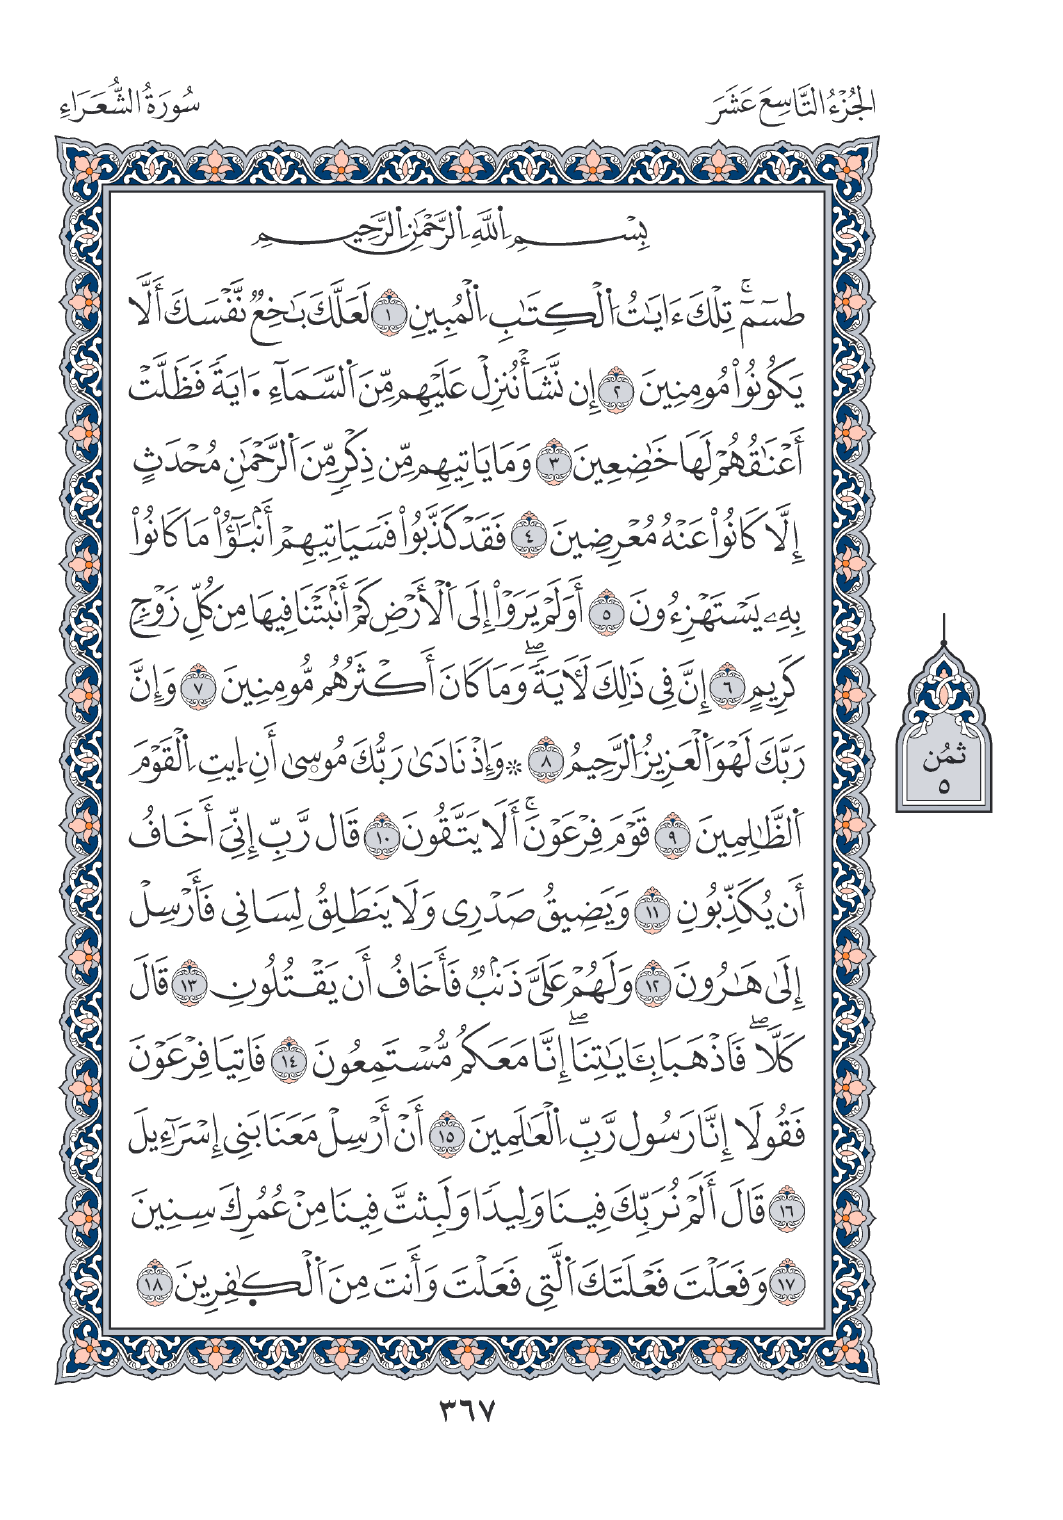 الجُزْءُ التَّاسِعَ عَشَرَ
سُورَةُ الشُّعَرَاءِ
بِسْمِ اِ۬للَّهِ اِ۬لرَّحْمَٰنِ اِ۬لرَّحِيمِ
طسٓمٓۚ تِلْكَ ءَايَٰتُ اُ۬لْكِتَٰبِ اِ۬لْمُبِينِ ١ لَعَلَّكَ بَٰخِعٞ نَّفْسَكَ أَلَّا
يَكُونُواْ مُومِنِينَ ٢ إِن نَّشَأْ نُنزِلْ عَلَيْهِم مِّنَ اَ۬لسَّمَآءِ ا۬يَةٗ فَظَلَّتْ
أَعْنَٰقُهُمْ لَهَا خَٰضِعِينَ ٣ وَمَا يَاتِيهِم مِّن ذِكْرٖ مِّنَ اَ۬لرَّحْمَٰنِ مُحْدَثٍ
إِلَّا كَانُواْ عَنْهُ مُعْرِضِينَ ٤ فَقَدْ كَذَّبُواْ فَسَيَاتِيهِمْ أَنۢبَٰٓؤُاْ مَا كَانُواْ
بِهِۦ يَسْتَهْزِءُونَ ٥ أَوَلَمْ يَرَوْاْ إِلَى اَ۬لْأَرْضِ كَمْ أَنۢبَتْنَا فِيهَا مِن كُلِّ زَوْجٖ
كَرِيمٍ ٦ إِنَّ فِي ذَٰلِكَ لَأٓيَةٗۖ وَمَا كَانَ أَكْثَرُهُم مُّومِنِينَ ٧ وَإِنَّ
رَبَّكَ لَهْوَ اَ۬لْعَزِيزُ اُ۬لرَّحِيمُ ٨ ۞ وَإِذْ نَادَىٰ رَبُّكَ مُوسِىٰ أَنِ اِ۪يتِ اِ۬لْقَوْمَ
اَ۬لظَّٰلِمِينَ ٩ قَوْمَ فِرْعَوْنَۚ أَلَا يَتَّقُونَ ١٠ قَال رَّبِّ إِنِّيَ أَخَافُ
أَن يُكَذِّبُونِ ١١ وَيَضِيقُ صَدْرِي وَلَا يَنطَلِقُ لِسَانِي فَأَرْسِلْ
إِلَىٰ هَٰرُونَ ١٢ وَلَهُمْ عَلَيَّ ذَنۢبٞ فَأَخَافُ أَن يَقْتُلُونِ ١٣ قَالَ
كَلَّاۖ فَاذْهَبَا بِـَٔايَٰتِنَاۖ إِنَّا مَعَكُم مُّسْتَمِعُونَ ١٤ فَاتِيَا فِرْعَوْنَ
فَقُولَا إِنَّا رَسُول رَّبِّ اِ۬لْعَٰلَمِينَ ١٥ أَنْ أَرْسِلْ مَعَنَا بَنِي إِسْرَٰٓءِيلَ
١٦ قَالَ أَلَمْ نُرَبِّكَ فِينَا وَلِيدٗا وَلَبِثتَّ فِينَا مِنْ عُمُرِكَ سِنِينَ
١٧ وَفَعَلْتَ فَعْلَتَكَ اَ۬لَّتِي فَعَلْتَ وَأَنتَ مِنَ اَ۬لْكٰ۪فِرِينَ ١٨
ثُمُن
٥
٣٦٧